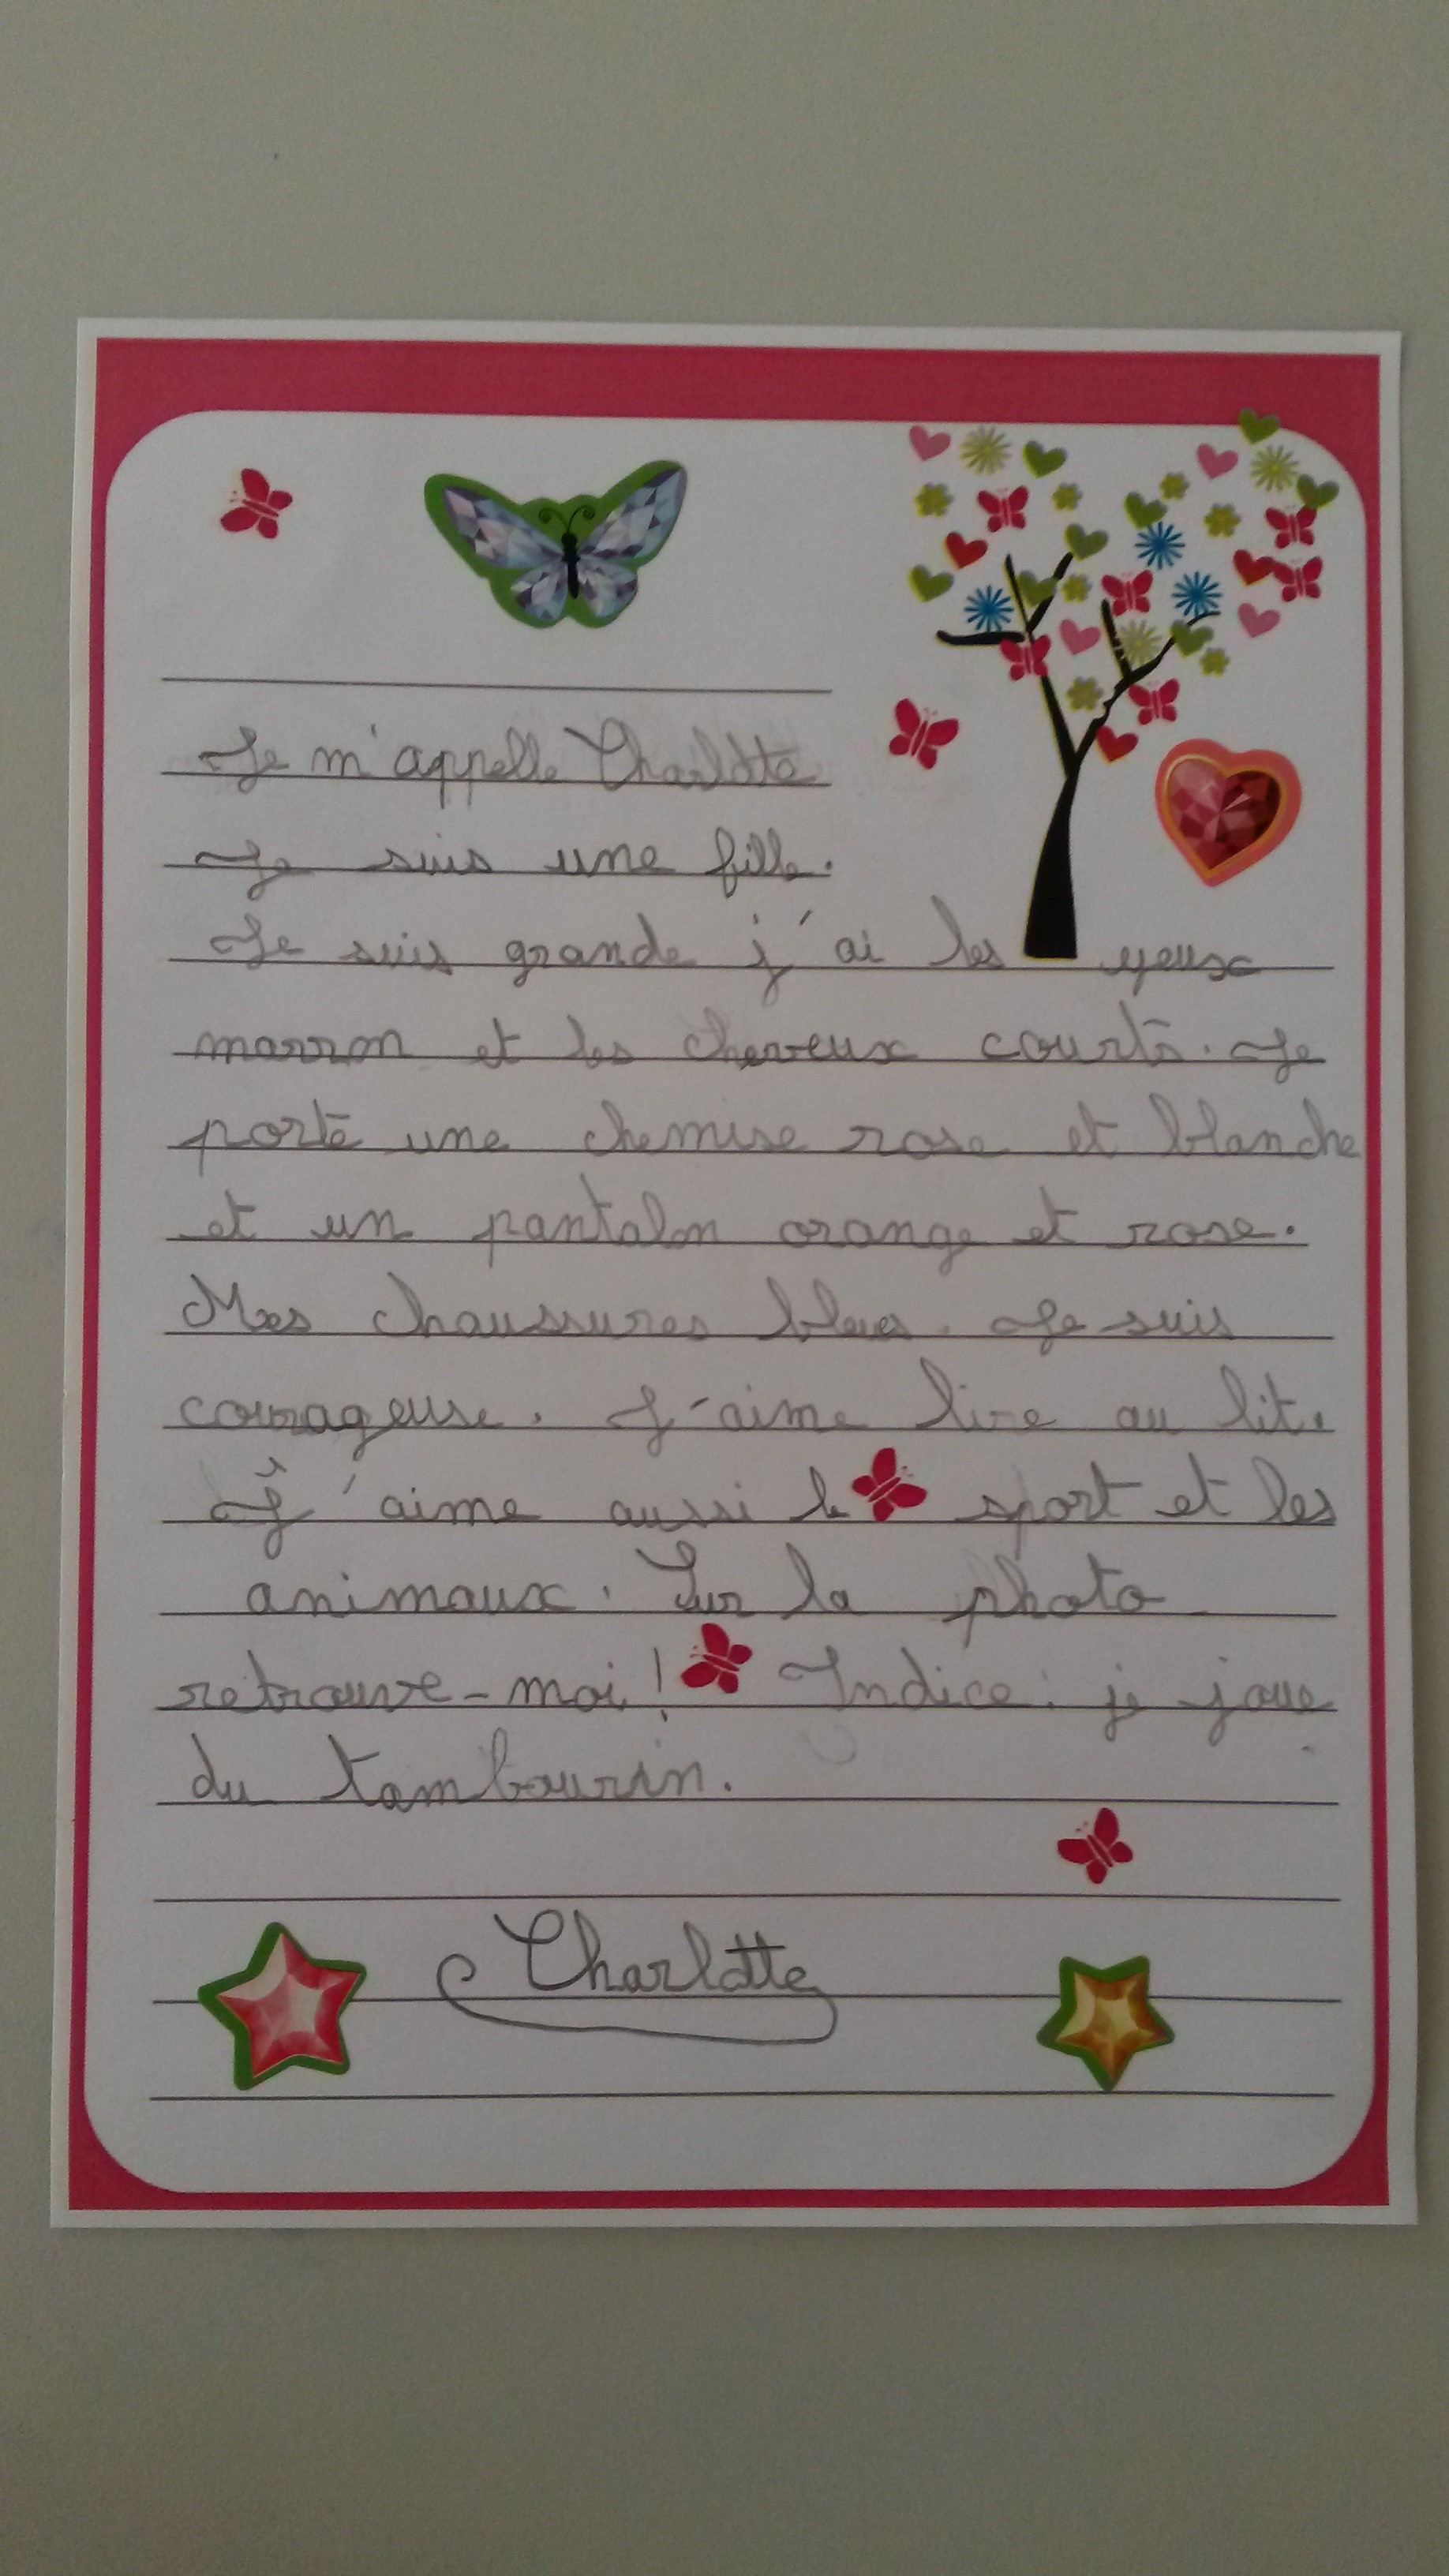 Je m'appelle Charlotte
Je suis une fille.
Je suis grande j'ai les yeux
marron et les cheveux courts. Je
porte une chemise rose et blanche
et un pantalon orange et rose.
Mes chaussures bleues. Je suis
courageuse. J'aime lire au lit.
J'aime aussi le sport et les
animaux. Sur la photo
retrouve-moi! Indice: je joue
du tambourin.
Charlotte